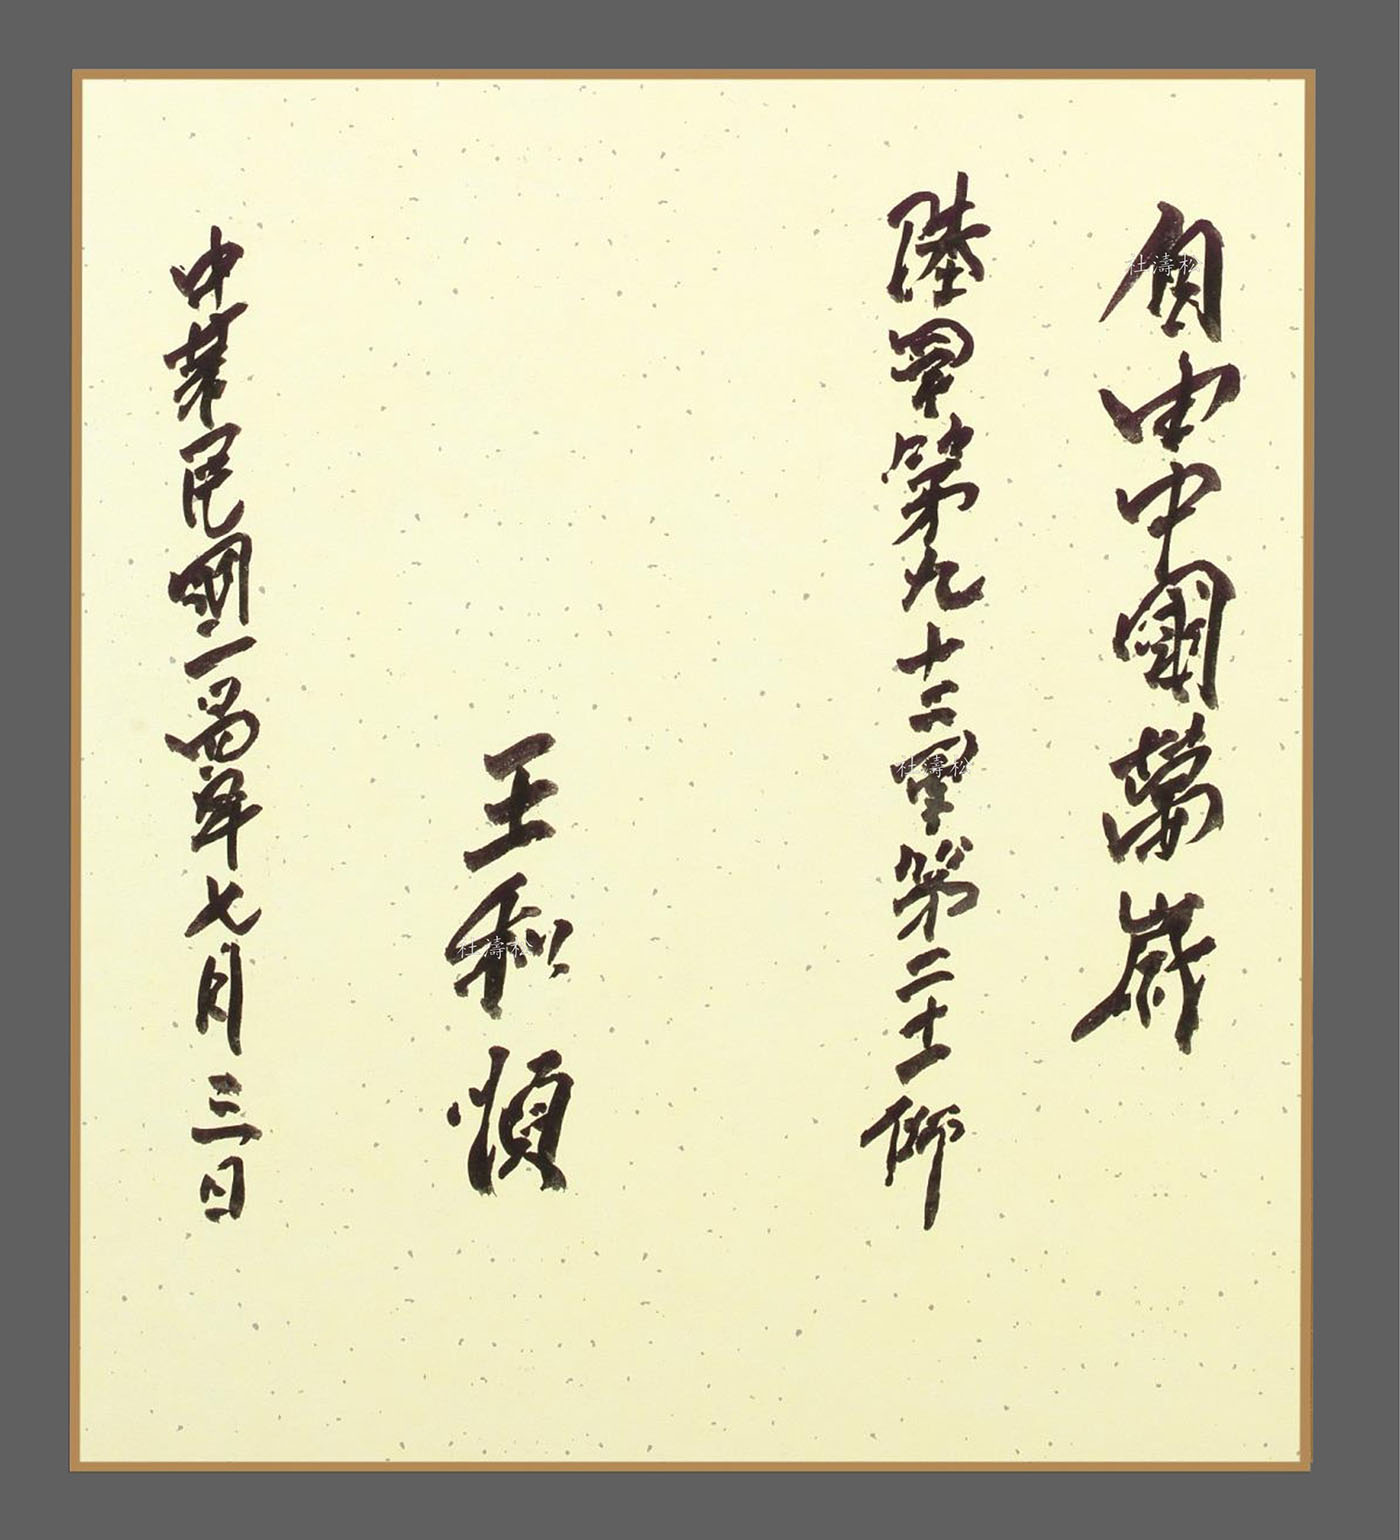 自由中國萬歲
陸軍第九十二軍第二十一師
王和順
中華民國一百年七月三日
杜濤松
杜濤松
杜濤松